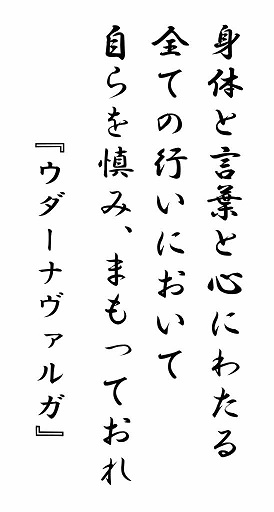 身体と言葉と心にわたる
全ての行いにおいて
自らを慎み、まもっておれ
『ウダーナヴァルガ』